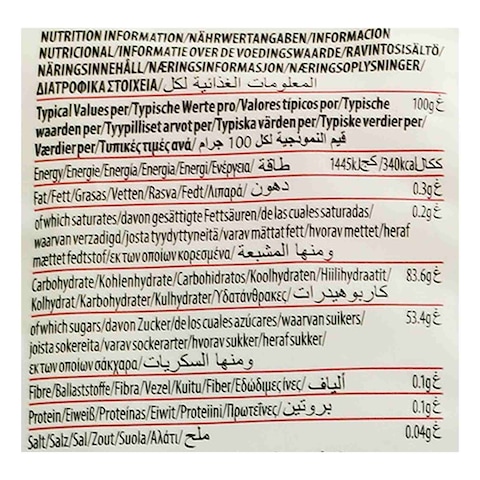 NUTRITION INFORMATION/NÄHRWERTANGABEN/INFORMACIÓN
NUTRICIONAL/INFORMATIE OVER DE VOEDINGSWAARDE/RAVINTOSISÄLTÖ/
NÄRINGSINNEHÅLL/NÆRINGSINFORMASJON/NÆRINGSOPLYSNINGER/
ΔΙΑΤΡΟΦΙΚΑ ΣΤΟΙΧΕΙΑ/المعلومات الغذائية لكل
Typical Values per/Typische Werte pro/Valores típicos por/Typische 100g غ
waarden per/Tyypilliset arvot per/Typiska värden per/Typiske verdier per/
Værdier per/Τυπικές τιμές ανά/ قيم النموذجية لكل 100 جرام
Energy/Energie/Energía/Energia/Energi/Ενέργεια/ طاقة 1445kJ كج/340kcal ككال
Fat/Fett/Grasas/Vetten/Rasva/Fedt/Λιπαρά/ دهون 0.3g غ
of which saturates/davon gesättigte Fettsäuren/de las cuales saturadas/ 0.2g غ
waarvan verzadigd/josta tyydyttyneitä/varav mättat fett/hvorav mettet/heraf
mættet fedtstof/εκ των οποίων κορεσμένα/ ومنها المشبعة
Carbohydrate/Kohlenhydrate/Carbohidratos/Koolhydraten/Hiilihydraatit/ 83.6g غ
Kolhydrat/Karbohydrater/Kulhydrater/Υδατάνθρακες/ كاربوهيدرات
of which sugars/davon Zucker/de los cuales azúcares/waarvan suikers/ 53.4g غ
joista sokereita/varav sockerarter/hvorav sukker/heraf sukker/
εκ των οποίων σάκχαρα/ ومنها السكريات
Fibre/Ballaststoffe/Fibra/Vezel/Kuitu/Fiber/Εδώδιμες ίνες/ ألياف 0.1g غ
Protein/Eiweiß/Proteínas/Eiwit/Proteiini/Πρωτεΐνες/ بروتين 0.1g غ
Salt/Salz/Sal/Zout/Suola/Αλάτι/ ملح 0.04g غ